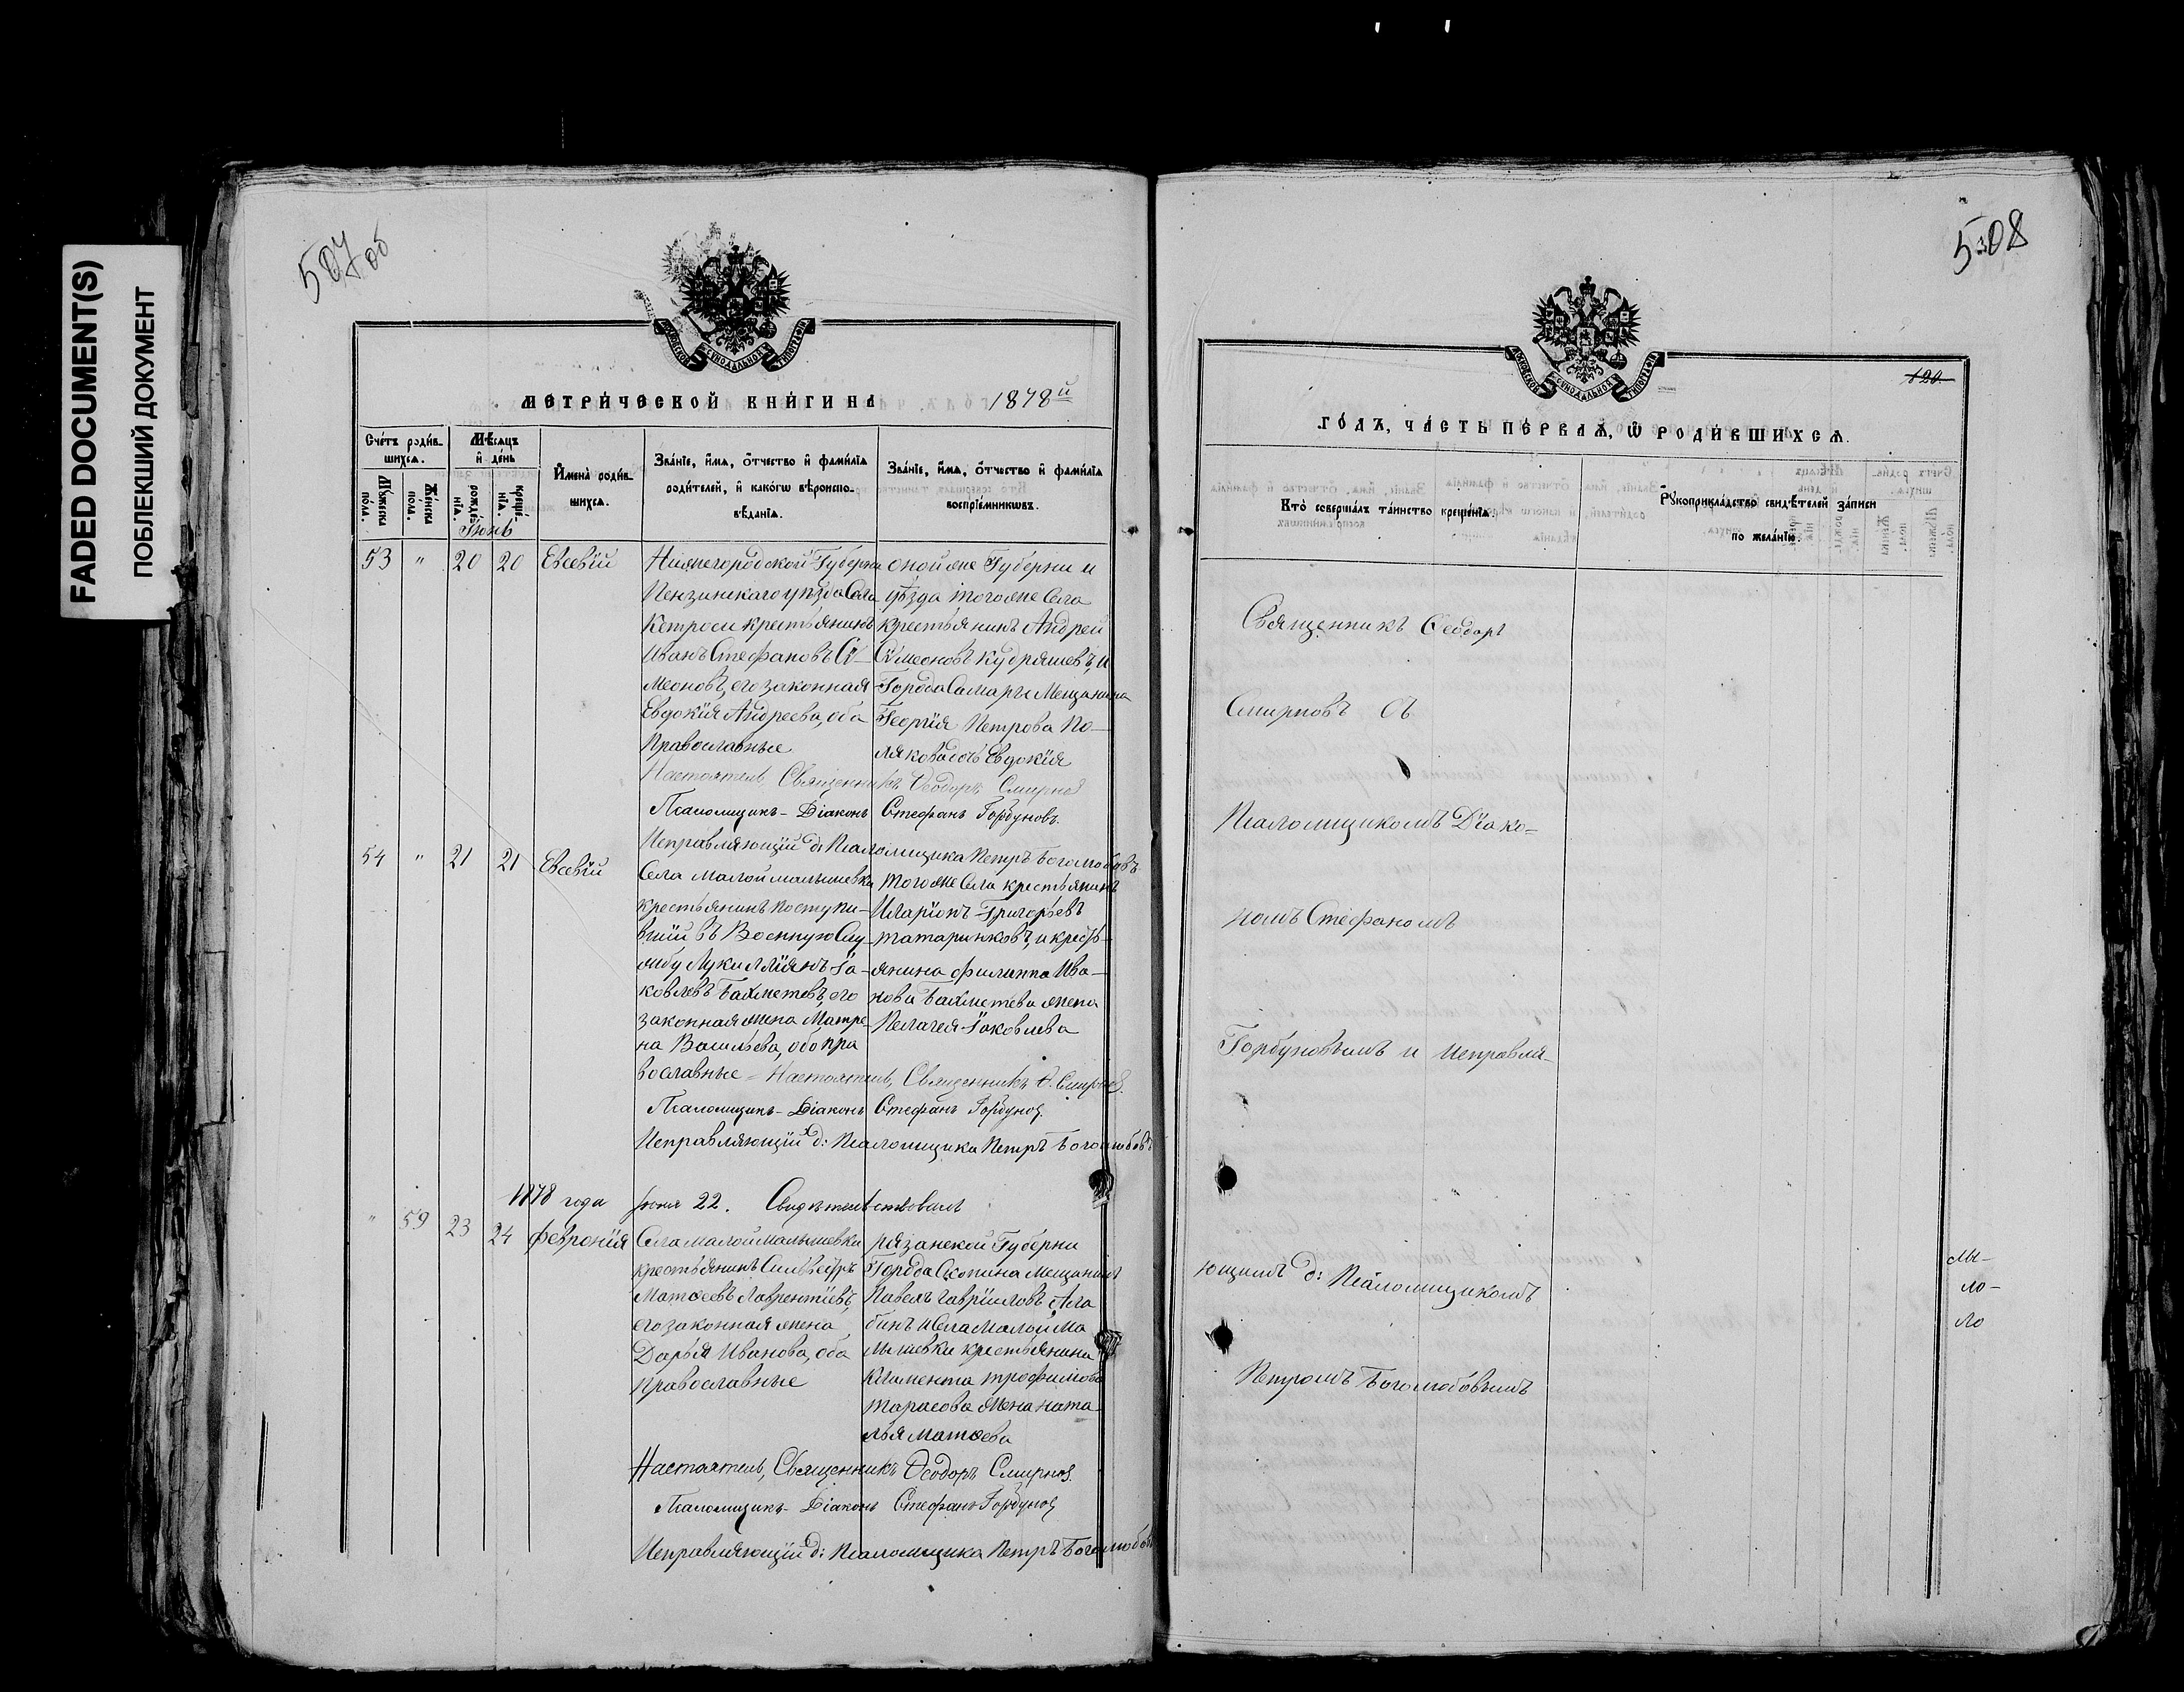 FADED DOCUMENT(S)
ПОБЛЕКШИЙ ДОКУМЕНТ
507 об
МОСКОВСКОЙ СѴНОДАЛЬНОЙ ТИПОГРАФІИ
МЕТРИЧЕСКОЙ КНИГИ НА 1878й
Счетъ родившихся.
Мужеска пола.
Женска пола.
Мѣсяцъ и день
рожденія.
крещенія.
Имена родившихся.
Званіе, имя, отчество и фамилія родителей, и какогѡ вѣроисповѣданія.
Званіе, имя, отчество и фамилія воспріемниковъ.
Іюнь
53 " 20 20 Евсевій
Нижегородской Губерни
уѣзда Села
крестьянинъ
Иванъ Стефановъ Си-
меоновъ, его законная
Евдокія Андреева, оба
Православные
оной же Губерни и
уѣзда того же Села
крестьянинъ Андрей
Симеоновъ Кудряшевъ, и
Города Самары Мещанина
Георгія Петрова По-
лякова дочь Евдокія
Настоятель, Священникъ Ѳеодоръ Смирнов
Псаломщикъ-Діаконъ Стефанъ Горбуновъ.
Исправляющій д: Псаломщика Петръ Боголюбовъ
54 " 21 21 Евсевій
Села Малой малышевки
крестьянинъ поступи-
вшій въ Военную Слу-
жбу Лукилліянъ Іа-
ковлевъ Бахметевъ, его
законная жена Матре-
на Васильева, оба пра
вославные
того же Села крестьянинъ
Иларіонъ Григорьевъ
татаринковъ, и кресть-
янина филиппа Ива-
нова Бахметева жена
Пелагея Іаковлева
Настоятель, Священникъ Ѳ. Смирнов.
Псаломщикъ-Діаконъ Стефанъ Горбунов.
Исправляющій д: Псаломщика Петръ Боголюбовъ
1878 года Іюня 22. Свидѣтельствовалъ
" 59 23 24 феврония
Села малой малышевки
крестьянинъ Сильвестръ
Матѳеевъ Лаврентіевъ,
его законная жена
Дарья Иванова, оба
православные
рязанской Губерни
Города Скопина Мещанинъ
Павелъ Гавріиловъ Ала
бинъ и Села Малой Ма
лышевки крестьянина
Климента трофимова
тарасова жена ната-
лья матѳева
Настоятель, Священникъ Ѳеодоръ Смирнов.
Псаломщикъ-Діаконъ Стефанъ Горбунов
Исправляющій д: Псаломщика Петръ Боголюбовъ
508
120
МОСКОВСКОЙ СѴНОДАЛЬНОЙ ТИПОГРАФІИ
ГОДЪ, ЧАСТЬ ПЕРВАЯ, Ѡ РОДИВШИХСЯ.
Кто совершалъ таинство крещенія.
Рукоприкладство свидѣтелей записи по желанію.
Священникъ Ѳеодоръ
Смирновъ съ
Псаломщикомъ Діако-
номъ Стефаномъ
Горбуновымъ и исправля-
ющимъ д: Псаломщикомъ
Петромъ Боголюбовымъ
мы-
ло-
ло